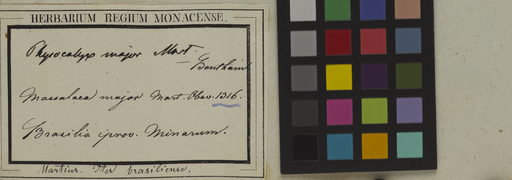 HERBARIUM REGIUM MONACENSE.
Physocalyx major Mart
Bentham
major Mart. Obs. 1316.
Brasilia prov. Minarum.
Martius. Iter brasiliense.